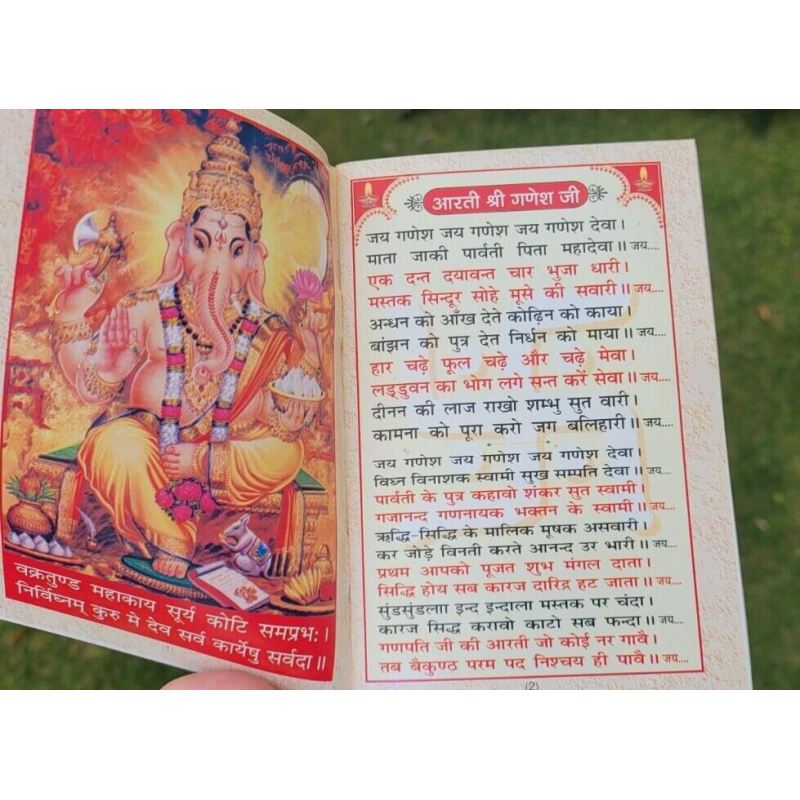 वक्रतुण्ड महाकाय सूर्य कोटि समप्रभः।
निर्विघ्नम् कुरु मे देव सर्व कार्येषु सर्वदा॥
आरती श्री गणेश जी
जय गणेश जय गणेश जय गणेश देवा।
माता जाकी पार्वती पिता महादेवा॥ जय....
एक दन्त दयावन्त चार भुजा धारी।
मस्तक सिन्दूर सोहे मूसे की सवारी॥ जय...
अन्धन को आँख देते कोढ़िन को काया।
बांझन को पुत्र देत निर्धन को माया॥ जय...
हार चढ़े फूल चढ़े और चढ़े मेवा।
लड्डुवन का भोग लगे सन्त करें सेवा॥ जय....
दीनन की लाज राखो शम्भु सुत वारी।
कामना को पूरा करो जग बलिहारी॥ जय....
जय गणेश जय गणेश जय गणेश देवा।
विध्न विनाशक स्वामी सुख सम्पति देवा॥ जय....
पार्वती के पुत्र कहावो शंकर सुत स्वामी।
गजानन्द गणनायक भक्तन के स्वामी॥ जय....
ऋद्धि-सिद्धि के मालिक मूषक असवारी।
कर जोड़े विनती करते आनन्द उर भारी॥ जय....
प्रथम आपको पूजत शुभ मंगल दाता।
सिद्धि होय सब कारज दारिद्र हट जाता॥ जय....
सुंडसुंडलाा इन्द इन्दाला मस्तक पर चंदा।
कारज सिद्ध करावो काटो सब फन्दा॥ जय....
गणपति जी की आरती जो कोई नर गावै।
तब बैकुण्ठ परम पद निश्चय ही पावै॥ जय....
(2)